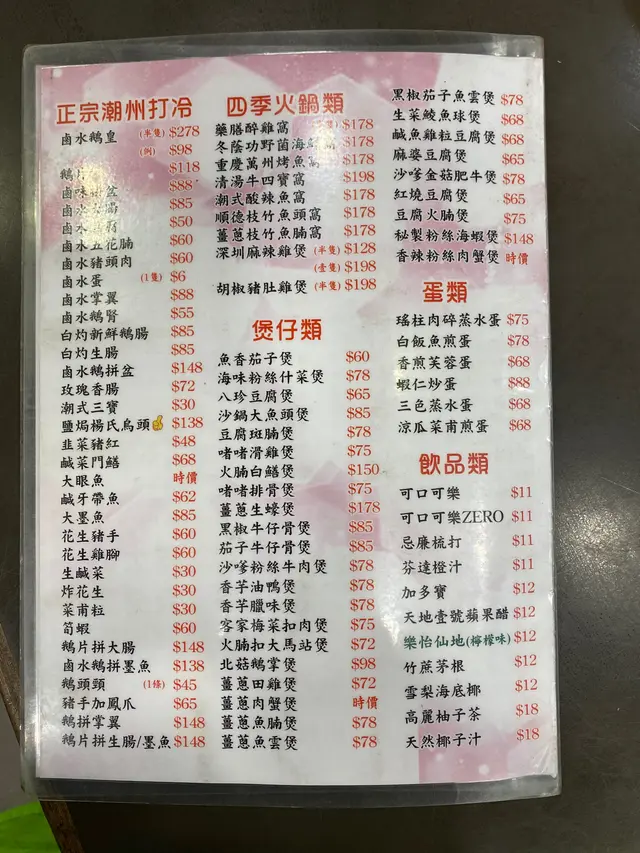 正宗潮州打冷
鹵水鵝皇 (半隻) $278
(例) $98
鵝片 $118
鹵味拼盆 $88
鹵水 $85
鹵水 $50
鹵水五花腩 $60
鹵水豬頭肉 $60
鹵水蛋 (1隻) $6
鹵水掌翼 $88
鹵水鵝腎 $55
白灼新鮮鵝腸 $85
白灼生腸 $85
鹵水鵝拼盆 $148
玫瑰香腸 $72
潮式三寶 $30
鹽焗楊氏烏頭 $138
韮菜豬紅 $48
鹹菜門鱔 $68
大眼魚 時價
鹹牙帶魚 $62
大墨魚 $85
花生豬手 $60
花生雞腳 $60
生鹹菜 $30
炸花生 $30
菜甫粒 $30
筍蝦 $60
鵝片拼大腸 $148
鹵水鵝拼墨魚 $138
鵝頭頸 (1條) $45
豬手加鳳爪 $65
鵝拼掌翼 $148
鵝片拼生腸/墨魚 $148
四季火鍋類
藥膳醉雞窩 $178
冬蔭功野菌海窩 $178
重慶萬州烤魚窩 $178
清湯牛四寶窩 $198
潮式酸辣魚窩 $178
順德枝竹魚頭窩 $178
薑蔥枝竹魚腩窩 $178
深圳麻辣雞煲 (半隻) $128
(壹隻) $198
胡椒豬肚雞煲 (半隻) $198
煲仔類
魚香茄子煲 $60
海味粉絲什菜煲 $78
八珍豆腐煲 $65
沙鍋大魚頭煲 $85
豆腐斑腩煲 $78
啫啫滑雞煲 $75
火腩白鱔煲 $150
啫啫排骨煲 $75
薑蔥生蠔煲 $178
黑椒牛仔骨煲 $85
茄子牛仔骨煲 $85
沙嗲粉絲牛肉煲 $78
香芋油鴨煲 $78
香芋臘味煲 $78
客家梅菜扣肉煲 $75
火腩扣大馬站煲 $72
北菇鵝掌煲 $98
薑蔥田雞煲 $72
薑蔥肉蟹煲 時價
薑蔥魚腩煲 $78
薑蔥魚雲煲 $78
黑椒茄子魚雲煲 $78
生菜鯪魚球煲 $68
鹹魚雞粒豆腐煲 $68
麻婆豆腐煲 $65
沙嗲金菇肥牛煲 $78
紅燒豆腐煲 $65
豆腐火腩煲 $75
秘製粉絲海蝦煲 $148
香辣粉絲肉蟹煲 時價
蛋類
瑤柱肉碎蒸水蛋 $75
白飯魚煎蛋 $78
香煎芙蓉蛋 $68
蝦仁炒蛋 $88
三色蒸水蛋 $68
涼瓜菜甫煎蛋 $68
飲品類
可口可樂 $11
可口可樂ZERO $11
忌廉梳打 $11
芬達橙汁 $11
加多寶 $12
天地壹號蘋果醋 $12
樂怡仙地(檸檬味) $12
竹蔗茅根 $12
雪梨海底椰 $12
高麗柚子茶 $18
天然椰子汁 $18